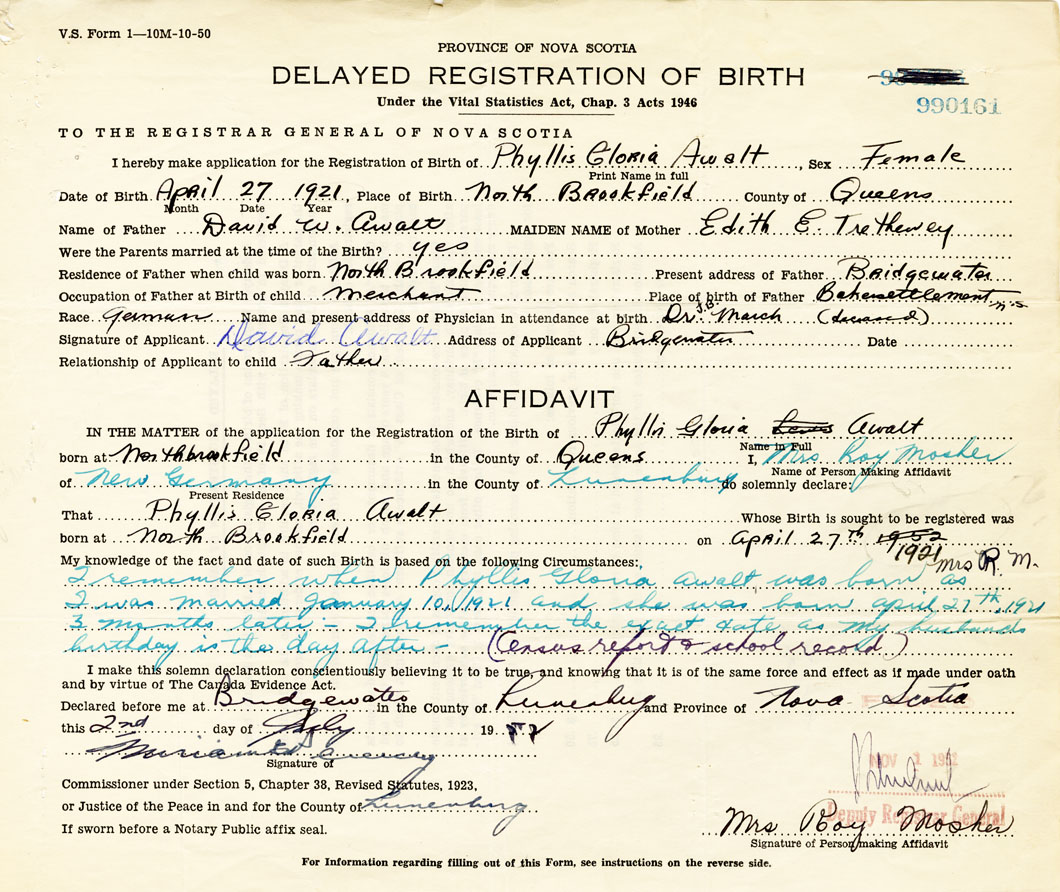 V.S. Form 1—10M-10-50
PROVINCE OF NOVA SCOTIA
DELAYED REGISTRATION OF BIRTH
Under the Vital Statistics Act, Chap. 3 Acts 1946
990161
TO THE REGISTRAR GENERAL OF NOVA SCOTIA
I hereby make application for the Registration of Birth of Phyllis Gloria Awalt, Sex Female
Print Name in full
Date of Birth April 27 1921, Place of Birth North Brookfield County of Queens
Month Date Year
Name of Father David W. Awalt MAIDEN NAME of Mother Edith E. Trethewey
Were the Parents married at the time of the Birth? yes
Residence of Father when child was born North Brookfield Present address of Father Bridgewater
Occupation of Father at Birth of child merchant Place of birth of Father Bakersettlement n.s
Race German Name and present address of Physician in attendance at birth Dr. J.B. March (deceased)
Signature of Applicant David Awalt Address of Applicant Bridgewater Date
Relationship of Applicant to child Father
AFFIDAVIT
IN THE MATTER of the application for the Registration of the Birth of Phyllis Gloria Awalt
Name in Full
born at Northbrookfield in the County of Queens I, Mrs Roy Mosher
Name of Person Making Affidavit
of New Germany in the County of Lunenburg do solemnly declare:
Present Residence
That Phyllis Gloria Awalt Whose Birth is sought to be registered was
born at North Brookfield on April 27th 1952
1921 Mrs R. M.
My knowledge of the fact and date of such Birth is based on the following Circumstances:
I remember when Phyllis Gloria Awalt was born as
I was married January 10, 1921 and she was born april 27th, 1921
3 months later - I remember the exact date as my husbands
birthday is the day after - (Census report & school record)
I make this solemn declaration conscientiously believing it to be true, and knowing that it is of the same force and effect as if made under oath
and by virtue of The Canada Evidence Act.
Declared before me at Bridgewater in the County of Lunenburg and Province of Nova Scotia
this 2nd day of July 1952
Signature of
Commissioner under Section 5, Chapter 38, Revised Statutes, 1923,
or Justice of the Peace in and for the County of Lunenburg
If sworn before a Notary Public affix seal.
NOV 1 1952
Deputy Registrar General
Mrs Roy Mosher
Signature of Person making Affidavit
For Information regarding filling out of this Form, see instructions on the reverse side.